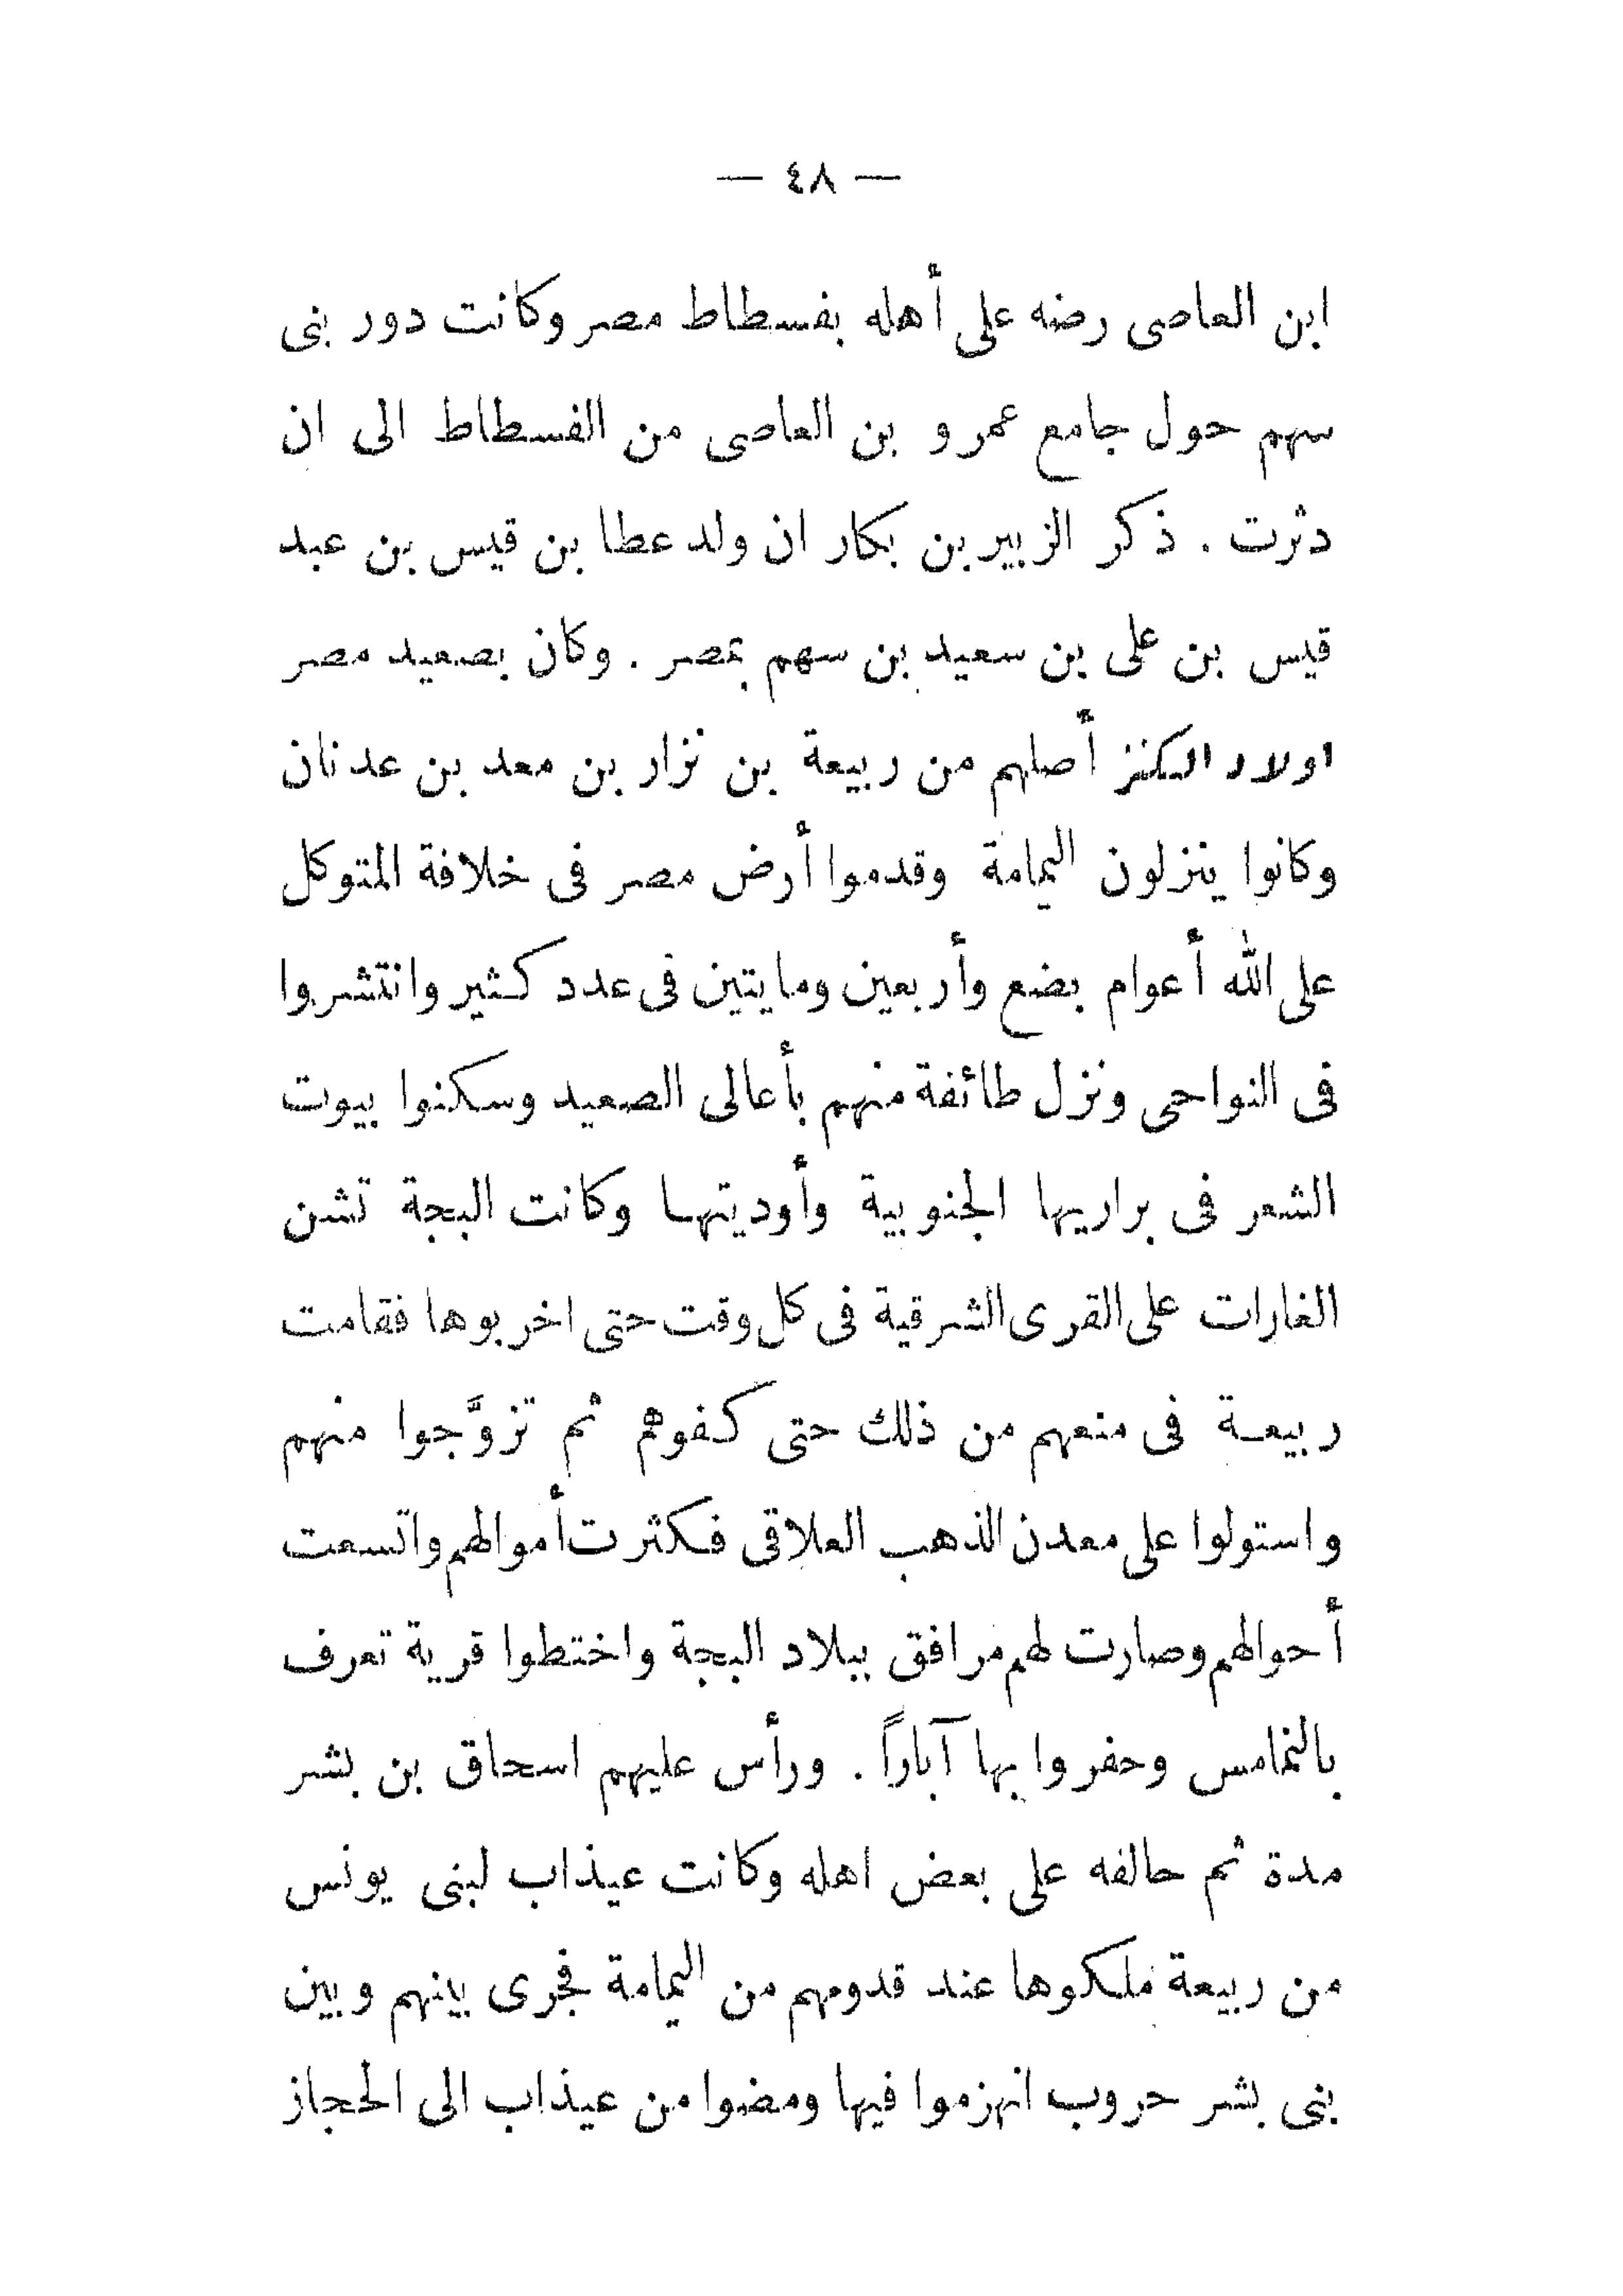 — ٤٨ —
ابن العاصى رضه على أهله بفسطاط مصر وكانت دور بنى
سهم حول جامع عمرو بن العاصى من الفسطاط الى ان
دثرت . ذكر الزبير بن بكار ان ولد عطا بن قيس بن عبد
قيس بن على بن سعيد بن سهم بمصر . وكان بصعيد مصر
اولاد الكنز أصلهم من ربيعة بن نزار بن معد بن عدنان
وكانوا ينزلون اليمامة وقدموا أرض مصر فى خلافة المتوكل
على الله أعوام بضع وأربعين ومايتين فى عدد كثير وانتشروا
فى النواحى ونزل طائفة منهم بأعالى الصعيد وسكنوا بيوت
الشعر فى براريها الجنوبية وأوديتها وكانت البجة تشن
الغارات على القرى الشرقية فى كل وقت حتى اخربوها فقامت
ربيعة فى منعهم من ذلك حتى كفوهم ثم تزوَّجوا منهم
واستولوا على معدن الذهب العلاقى فكثرت أموالهم واتسعت
أحوالهم وصارت لهم مرافق ببلاد البجة واختطوا قرية تعرف
بالنمامس وحفروا بها آباراً . ورأس عليهم اسحاق بن بشر
مدة ثم حالفه على بعض اهله وكانت عيذاب لبنى يونس
من ربيعة ملكوها عند قدومهم من اليمامة فجرى بينهم وبين
بنى بشر حروب انهزموا فيها ومضوا من عيذاب الى الحجاز